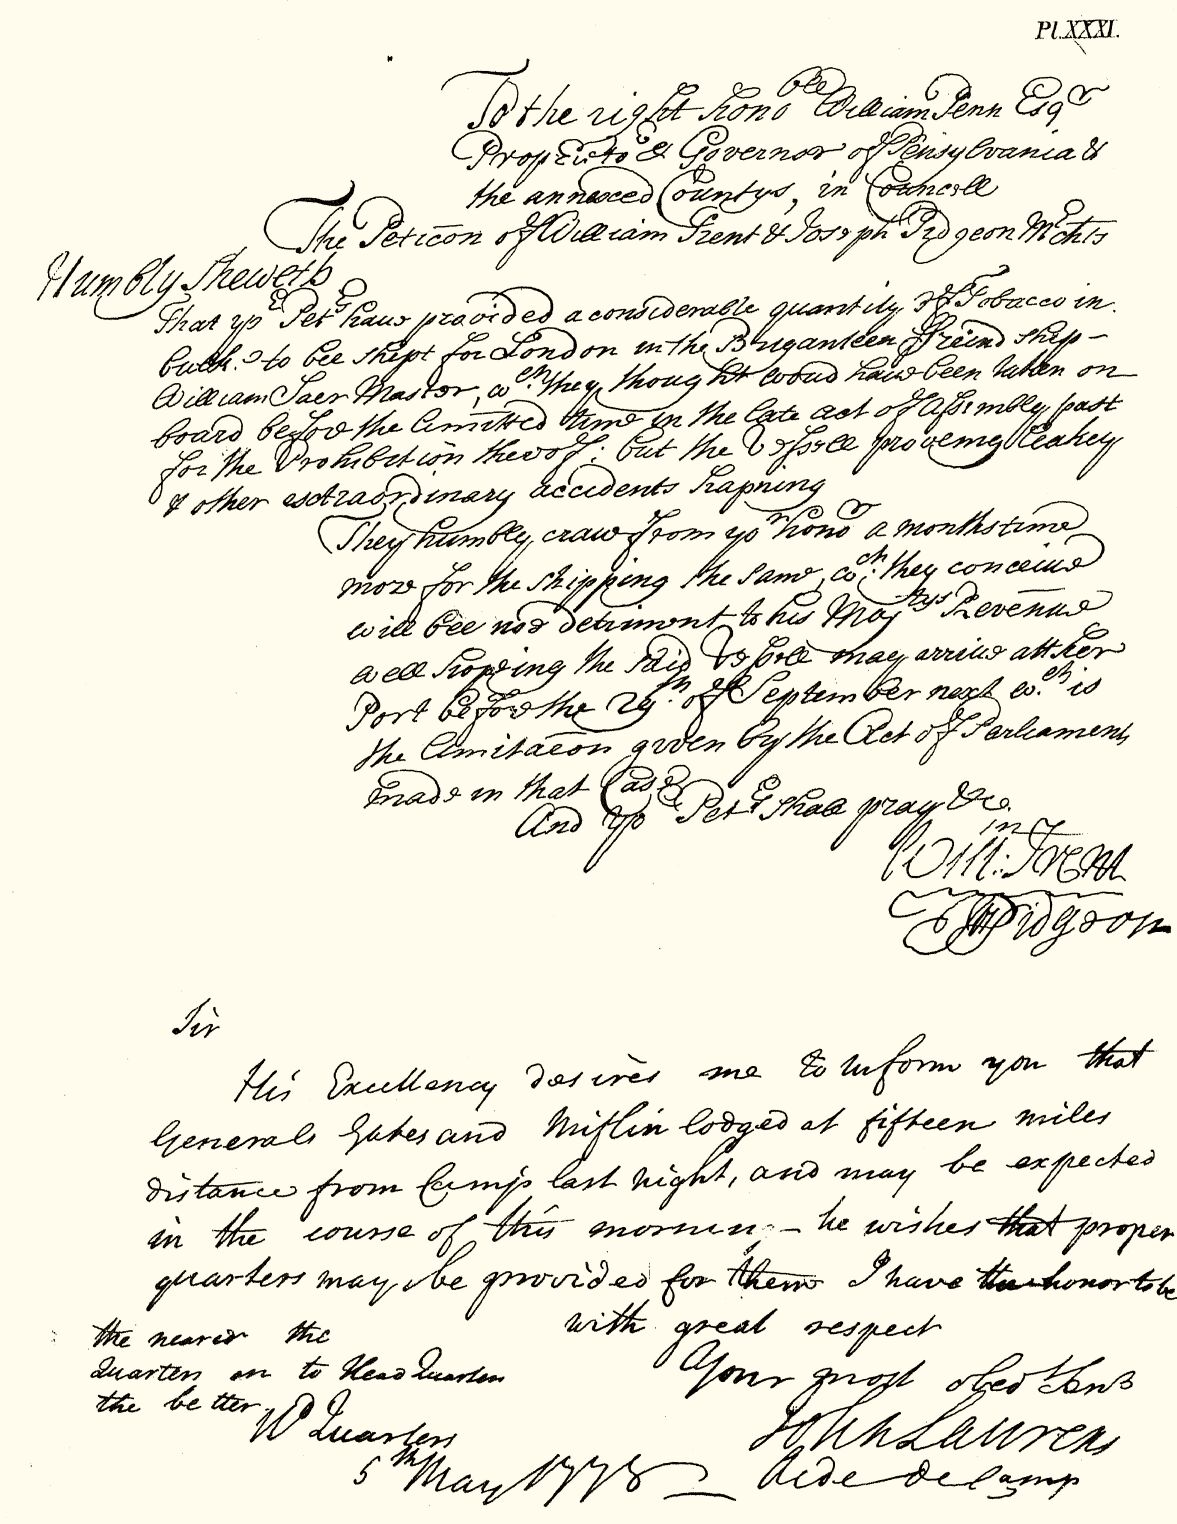 Pl. XXXI.
To the right hono^ble William Penn Esq^r
Propriето^r & Governor of Pensylvania &
the annexed Countys, in Councell
The Peticon of William Trent & Joseph Pidgeon M^chts
Humbly Sheweth
That yo^r Pet^rs have provided a considerable quantity of Tobacco in
bulke to bee shipt for London in the Briganteen ffreind ship-
William Saer Master, w^ch they thought would have been taken on
board before the limitted time in the late act of Assembly past
for the Prohibition thereof: but the Vessell proveing leakey
& other extraordinary accidents hapning
They humbly crave from yo^r hono^r a months time
more for the shipping the same, w^ch they conceive
will bee noe detriment to his Maj^tys Revenue
well hopeing the said Vessell may arrive att her
Port before the 29^th of September next w^ch is
the limitacon given by the Act of Parliament
made in that Case
And yo^r Pet^rs shall pray &c.
Will^m: Trent
Jos Pidgeon
Sir
His Excellency desires me to inform you that
Generals Gates and Mifflin lodged at fifteen miles
distance from Camp last night, and may be expected
in the course of this morning - he wishes that proper
quarters may be provided for them I have the honor to be
with great respect
the nearer the
Quarters are to Head Quarters
the better
Your most obed^t Serv^t
John Laurens
Aide de Camp
H^d Quarters
5^th May 1778